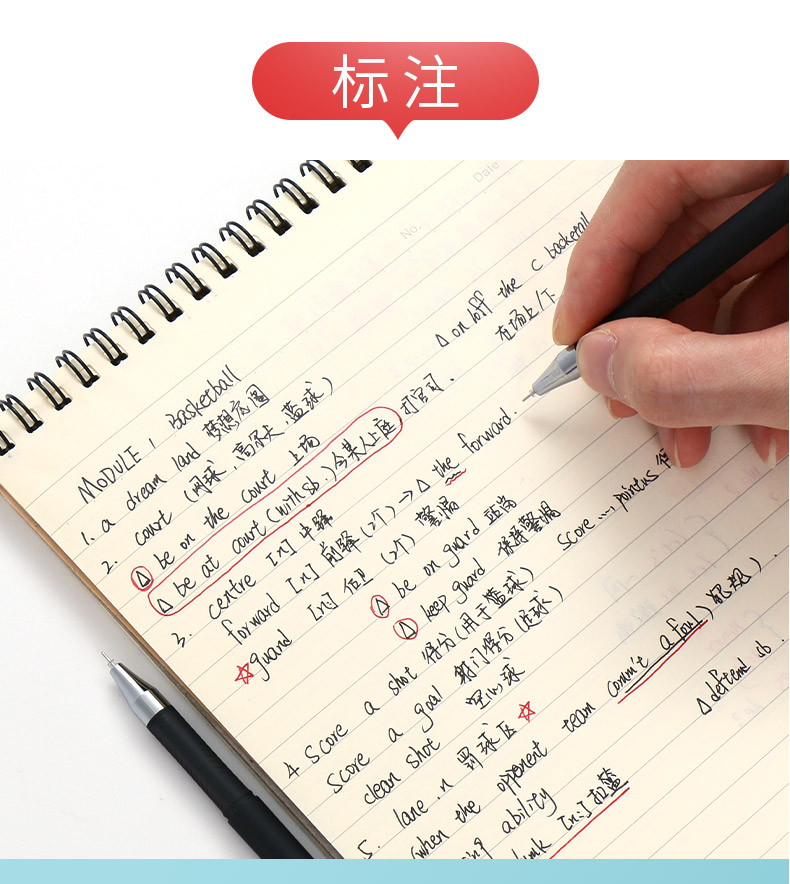 标注
No.
Date
MODULE 1 Basketball
1. a dream land 梦想家园
2. court (网球,高尔夫,篮球)
△ be on the court 上场
△ be at court (with sb.) 令某人上庭 打官司.
△ on/off the c basketball
在场上/下
3. centre [n] 中锋
forward [n] 前锋 (2个) → △ the forward.
☆ guard [n] 后卫 (2个) 警惕
△ be on guard 站岗
△ keep guard 保持警惕
4. score a shot 得分(用于篮球)
score a goal 射门得分(足球)
score ... points
clean shot 空心球
5. lane .n 罚球区 ☆
(when the opponent team commit a foul) 犯规).
△ defend sb.
ability
[n.] 扣篮